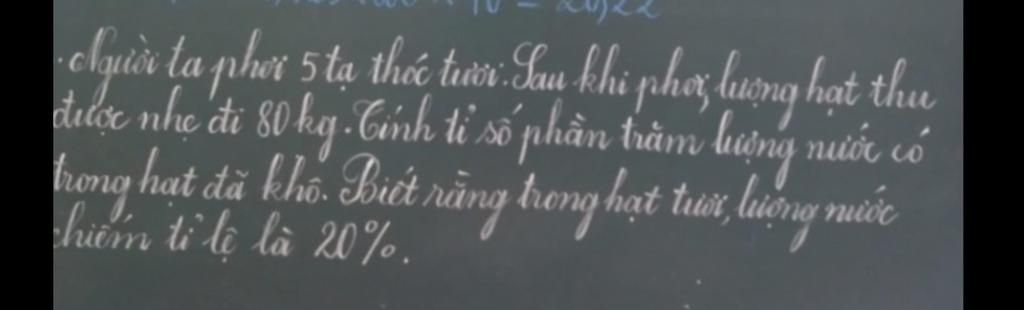 . Người ta phơi 5 tạ thóc tươi. Sau khi phơi, lượng hạt thu
được nhẹ đi 80 kg. Tính tỉ số phần trăm lượng nước có
trong hạt đã khô. Biết rằng trong hạt tươi, lượng nước
chiếm tỉ lệ là 20%.